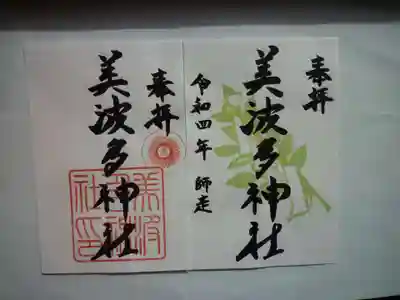 奉拝
美波多神社
令和四年 師走
奉拝
美波多神社
美波多神社印